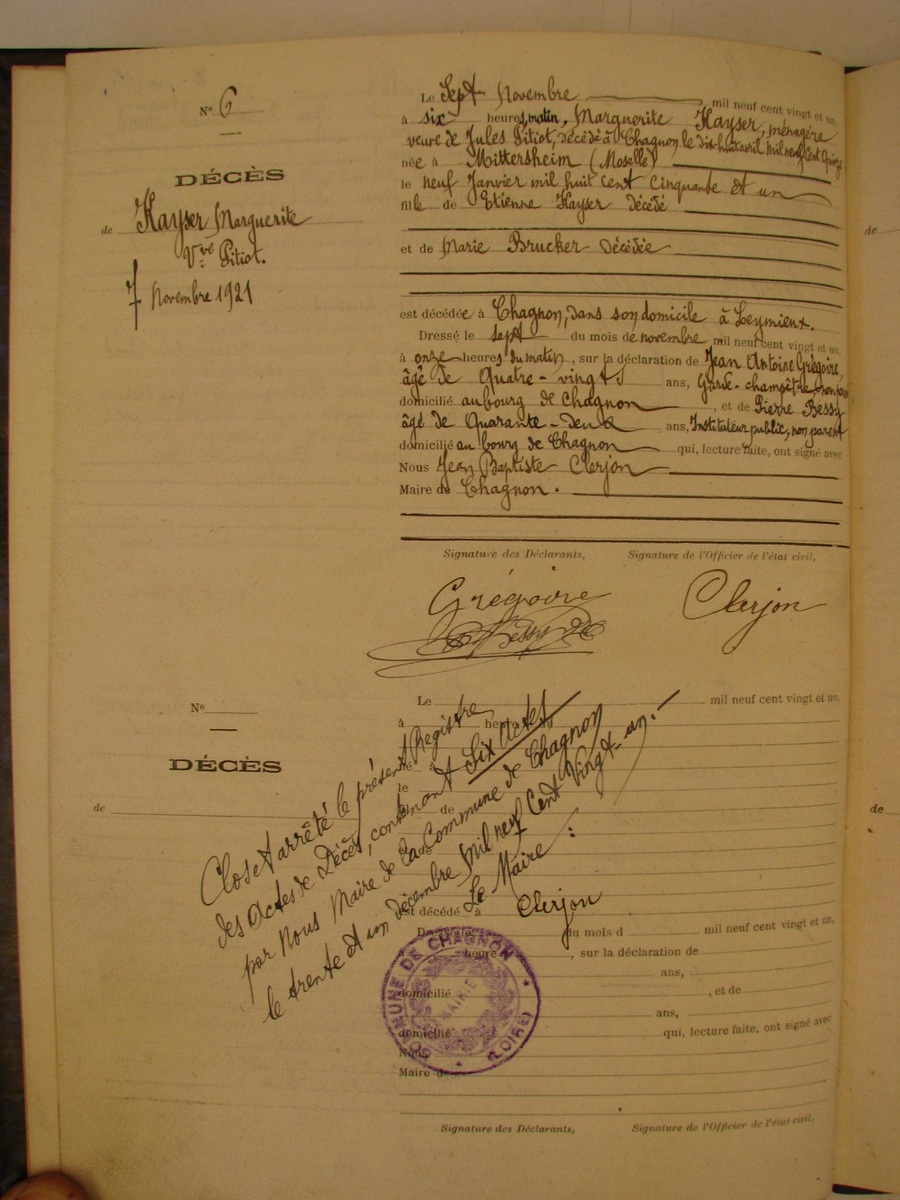 N° 6
DÉCÈS
de Kayser Marguerite
Vve Pitiot.
7 Novembre 1921
Le Sept Novembre mil neuf cent vingt et un,
à six heures, matin, Marguerite Kayser, ménagère
veuve de Jules Pitiot, décédé à Chagnon le dix-huit avril mil neuf Cent Quinze
née à Mittersheim (Moselle)
le neuf Janvier mil huit cent cinquante et un
fille de Etienne Kayser décédé
et de Marie Brucker décédée
est décédée à Chagnon, dans son domicile à Leymieux.
Dressé le sept du mois de novembre mil neuf cent vingt et un,
à onze heures du matin, sur la déclaration de Jean Antoine Grégoire,
âgé de Quatre-vingts ans, Garde-champêtre, non
domicilié au bourg de Chagnon, et de Pierre Bessy
âgé de Quarante-deux ans, Instituteur public, non parent
domicilié au bourg de Chagnon qui, lecture faite, ont signé avec
Nous Jean Baptiste Clerjon
Maire de Chagnon.
Signature des Déclarants, Signature de l'Officier de l'état civil,
Grégoire Clerjon
Bessy
N°
DÉCÈS
de
Le mil neuf cent vingt et un,
à heure
né à
le
de
et de
est décédé à
Dressé le du mois d mil neuf cent vingt et un,
à heure, sur la déclaration de
ans,
domicilié, et de
ans,
domicilié qui, lecture faite, ont signé avec
Nous
Maire de
Signature des Déclarants, Signature de l'Officier de l'état civil,
Clos et arrêté le présent Registre
des actes de Décès, contenant Six actes,
par Nous Maire de la Commune de Chagnon
le trente et un décembre Mil neuf Cent Vingt-un.-
Le Maire:
Clerjon
COMMUNE DE CHAGNON
MAIRIE
(LOIRE)
de
de